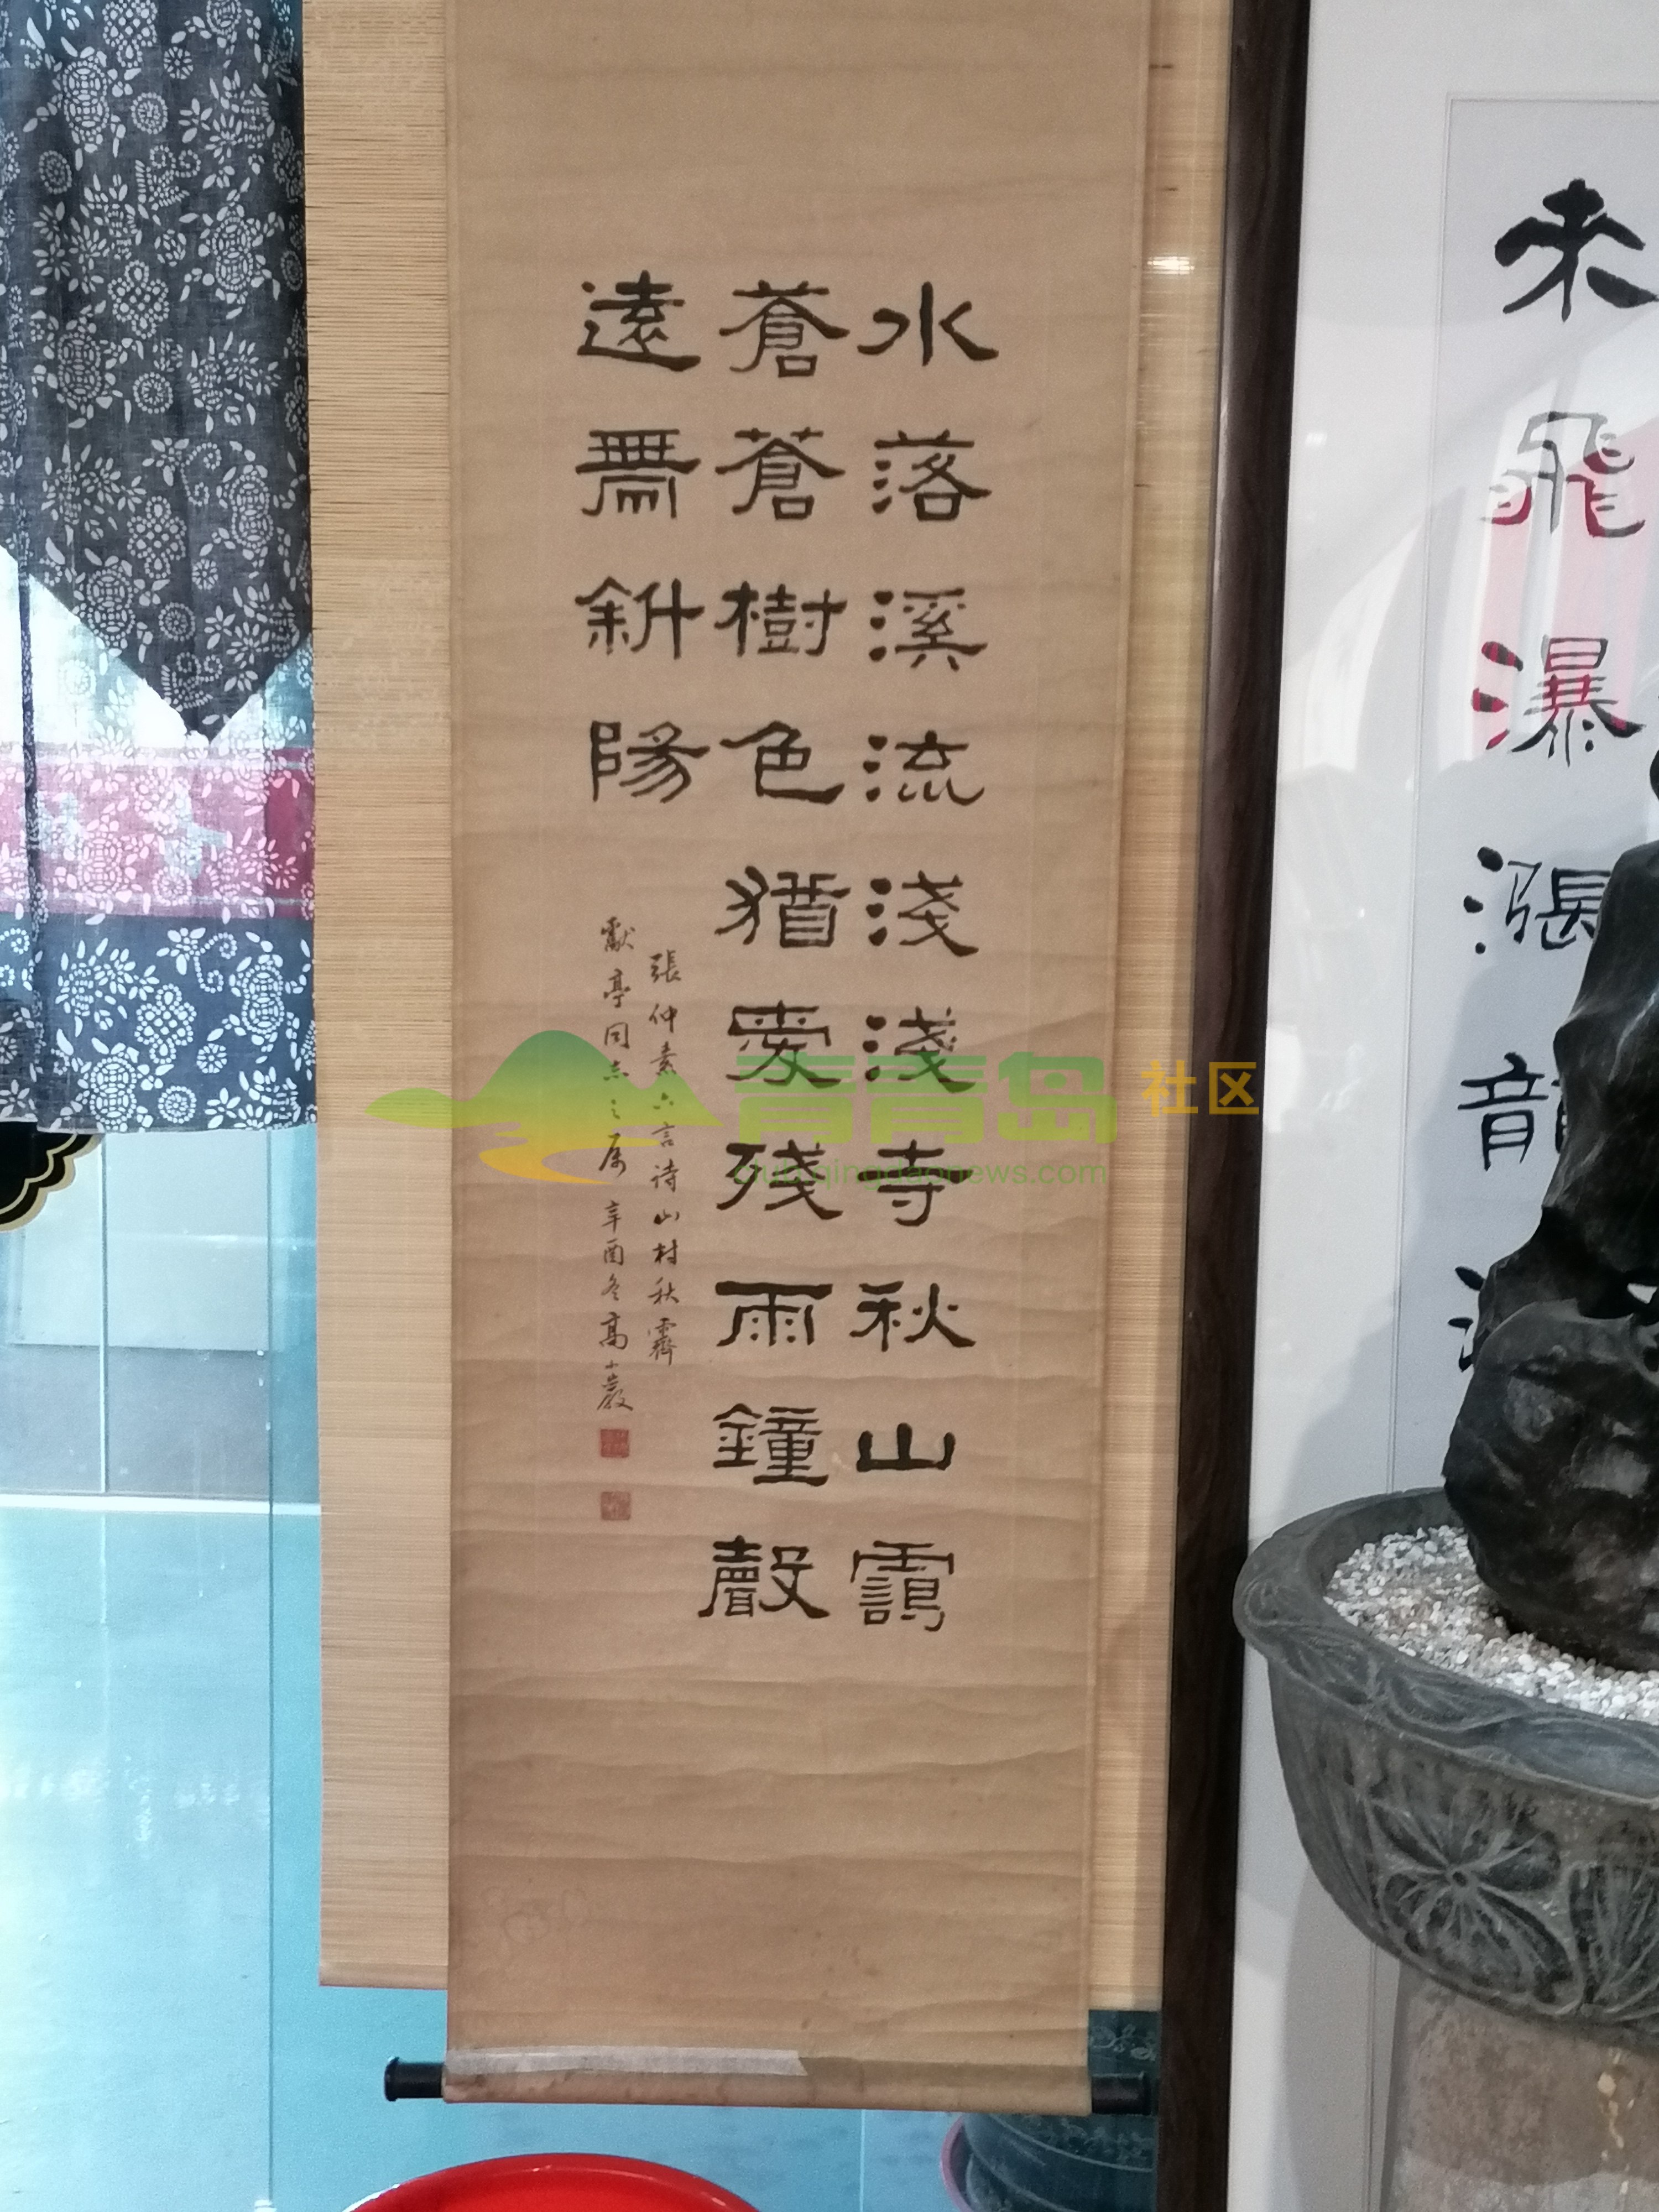 水落溪流淺淺寺秋山靄
蒼蒼樹色猶虆殘雨鐘聲
遠焉斜陽
張仲素六言诗山村秋霽
獻亭同志之属辛酉冬高小巖
未飛瀑漲龍
青青岛社区
club.qingdaonews.com